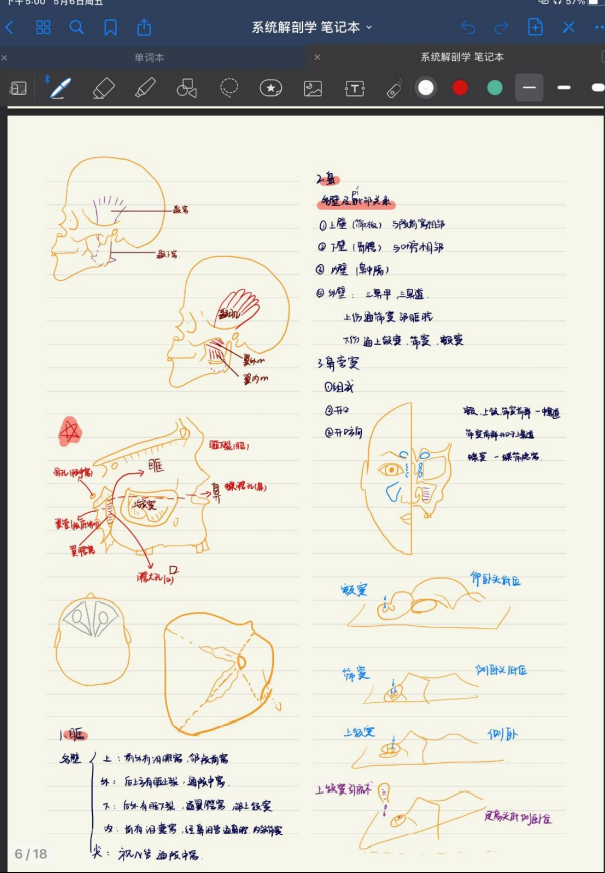 下午5:00 5月6日周五
57%
系统解剖学 笔记本
单词本
系统解剖学 笔记本
颞窝
颞下窝
颞肌
翼外m
翼内m
眶下裂(眶)
眶
鼻
蝶腭孔(鼻)
上颌窦
翼腭窝
口
腭大孔(口)
1.眶
各壁
上：前外有泪腺窝，邻颅前窝
外：后上方有眶上裂，通颅中窝
下：后外有眶下裂，通翼腭窝，邻上颌窦
内：前有泪囊窝，经鼻泪管通鼻腔，内邻筛窦
尖：视N管通颅中窝.
2.鼻
各壁及毗邻关系
pí
①上壁（筛板）与颅前窝相邻
②下壁（骨腭）与口腔相邻
③内壁（鼻中隔）
④外壁：三鼻甲，三鼻道
上份通筛窦邻眶腔
下份通上颌窦、筛窦、额窦
3.鼻旁窦
①组成
②开口
③开口方向
额、上颌、筛窦前群－中鼻道
筛窦后群开口于上鼻道
蝶窦－蝶筛隐窝
额窦
仰卧头后位
筛窦
侧卧头后位
上颌窦
侧卧
上颌窦引流术
6 / 18